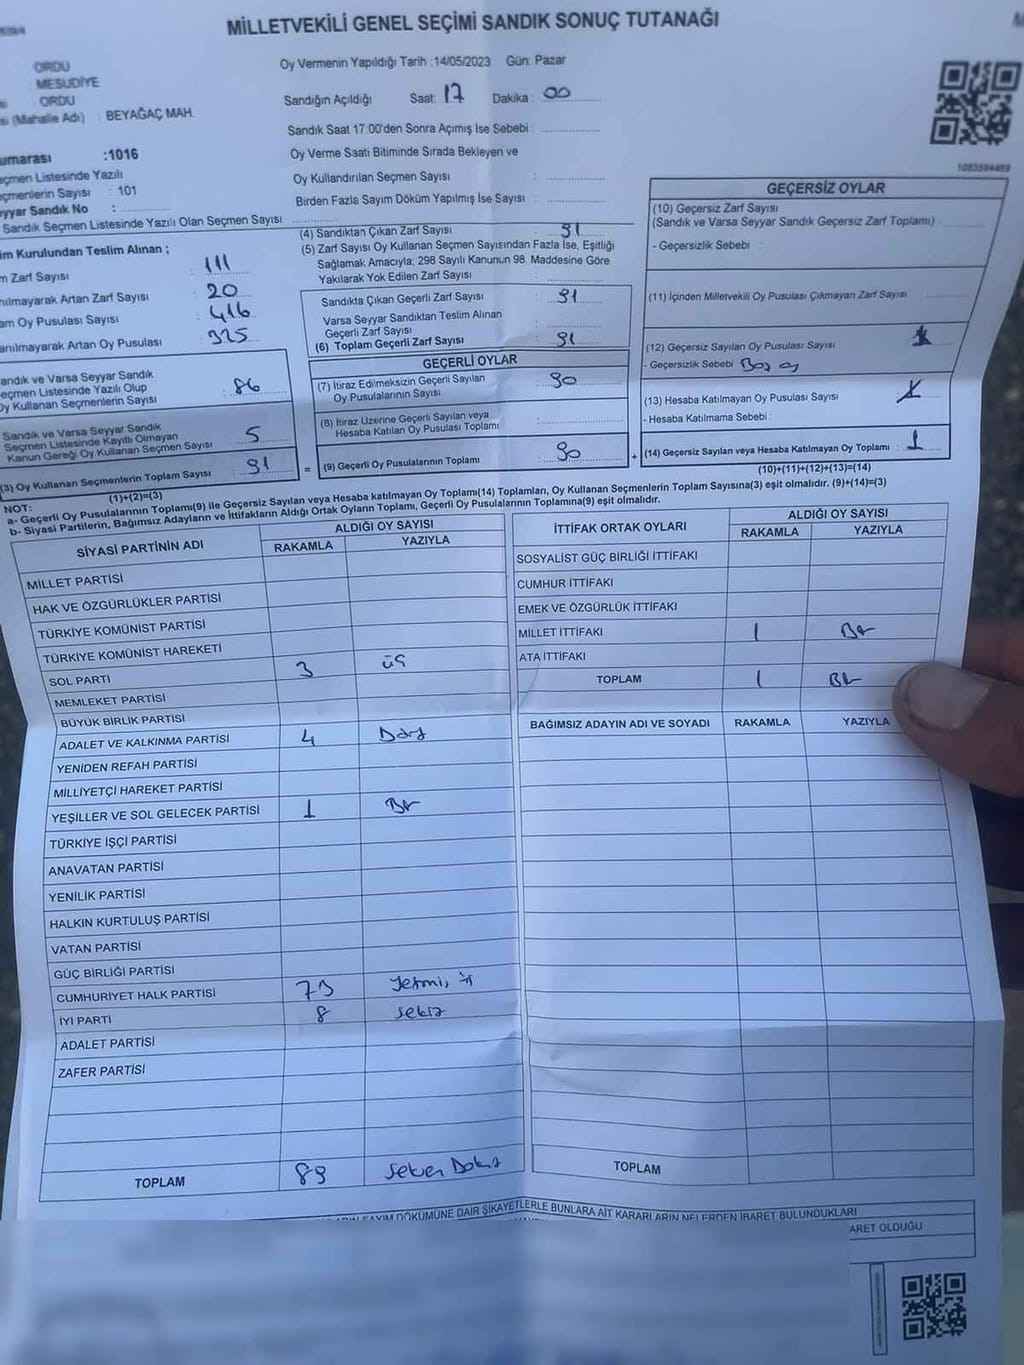 MİLLETVEKİLİ GENEL SEÇİMİ SANDIK SONUÇ TUTANAĞI
ORDU
MESUDİYE
ORDU
si (Mahalle Adı) : BEYAĞAÇ MAH.
umarası :1016
eçmen Listesinde Yazılı
eçmenlerin Sayısı : 101
eyyar Sandık No :
Sandık Seçmen Listesinde Yazılı Olan Seçmen Sayısı
Oy Vermenin Yapıldığı Tarih :14/05/2023 Gün: Pazar
Sandığın Açıldığı Saat: 17 Dakika : 00
Sandık Saat 17:00'den Sonra Açımış İse Sebebi :
Oy Verme Saati Bitiminde Sırada Bekleyen ve
Oy Kullandırılan Seçmen Sayısı :
Birden Fazla Sayım Döküm Yapılmış İse Sayısı :
im Kurulundan Teslim Alınan ;
m Zarf Sayısı : 111
nılmayarak Artan Zarf Sayısı : 20
am Oy Pusulası Sayısı : 416
anılmayarak Artan Oy Pusulası : 325
andık ve Varsa Seyyar Sandık
eçmen Listesinde Yazılı Olup
Oy Kullanan Seçmenlerin Sayısı : 86
Sandık ve Varsa Seyyar Sandık
Seçmen Listesinde Kayıtlı Olmayan
Kanun Gereği Oy Kullanan Seçmen Sayısı : 5
(3) Oy Kullanan Seçmenlerin Toplam Sayısı : 91
(1)+(2)=(3)
(4) Sandıktan Çıkan Zarf Sayısı : 91
(5) Zarf Sayısı Oy Kullanan Seçmen Sayısından Fazla İse, Eşitliği
Sağlamak Amacıyla; 298 Sayılı Kanunun 98. Maddesine Göre
Yakılarak Yok Edilen Zarf Sayısı :
Sandıkta Çıkan Geçerli Zarf Sayısı : 91
Varsa Seyyar Sandıktan Teslim Alınan
Geçerli Zarf Sayısı :
(6) Toplam Geçerli Zarf Sayısı : 91
GEÇERLİ OYLAR
(7) İtiraz Edilmeksizin Geçerli Sayılan
Oy Pusulalarının Sayısı : 90
(8) İtiraz Üzerine Geçerli Sayılan veya
Hesaba Katılan Oy Pusulası Toplamı :
= (9) Geçerli Oy Pusulalarının Toplamı : 90 +
1083594469
GEÇERSİZ OYLAR
(10) Geçersiz Zarf Sayısı
(Sandık ve Varsa Seyyar Sandık Geçersiz Zarf Toplamı) :
- Geçersizlik Sebebi :
(11) İçinden Milletvekili Oy Pusulası Çıkmayan Zarf Sayısı :
(12) Geçersiz Sayılan Oy Pusulası Sayısı : 1
- Geçersizlik Sebebi : Boş oy
(13) Hesaba Katılmayan Oy Pusulası Sayısı :
- Hesaba Katılmama Sebebi :
(14) Geçersiz Sayılan veya Hesaba Katılmayan Oy Toplamı : 1
(10)+(11)+(12)+(13)=(14)
NOT:
a- Geçerli Oy Pusulalarının Toplamı(9) ile Geçersiz Sayılan veya Hesaba katılmayan Oy Toplamı(14) Toplamları, Oy Kullanan Seçmenlerin Toplam Sayısına(3) eşit olmalıdır. (9)+(14)=(3)
b- Siyasi Partilerin, Bağımsız Adayların ve İttifakların Aldığı Ortak Oyların Toplamı, Geçerli Oy Pusulalarının Toplamına(9) eşit olmalıdır.
SİYASİ PARTİNİN ADI ALDIĞI OY SAYISI
RAKAMLA YAZIYLA
MİLLET PARTİSİ
HAK VE ÖZGÜRLÜKLER PARTİSİ
TÜRKİYE KOMÜNİST PARTİSİ
TÜRKİYE KOMÜNİST HAREKETİ
SOL PARTİ 3 üç
MEMLEKET PARTİSİ
BÜYÜK BİRLİK PARTİSİ
ADALET VE KALKINMA PARTİSİ 4 Dört
YENİDEN REFAH PARTİSİ
MİLLİYETÇİ HAREKET PARTİSİ
YEŞİLLER VE SOL GELECEK PARTİSİ 1 Bir
TÜRKİYE İŞÇİ PARTİSİ
ANAVATAN PARTİSİ
YENİLİK PARTİSİ
HALKIN KURTULUŞ PARTİSİ
VATAN PARTİSİ
GÜÇ BİRLİĞİ PARTİSİ
CUMHURİYET HALK PARTİSİ 73 Yetmiş üç
İYİ PARTİ 8 sekiz
ADALET PARTİSİ
ZAFER PARTİSİ
TOPLAM 89 Seksen Dokuz
İTTİFAK ORTAK OYLARI ALDIĞI OY SAYISI
RAKAMLA YAZIYLA
SOSYALİST GÜÇ BİRLİĞİ İTTİFAKI
CUMHUR İTTİFAKI
EMEK VE ÖZGÜRLÜK İTTİFAKI
MİLLET İTTİFAKI 1 Bir
ATA İTTİFAKI
TOPLAM 1 Bir
BAĞIMSIZ ADAYIN ADI VE SOYADI RAKAMLA YAZIYLA
TOPLAM
SAYIM DÖKÜMÜNE DAİR ŞİKAYETLERLE BUNLARA AİT KARARLARIN NELERDEN İBARET BULUNDUKLARI
ARET OLDUĞU